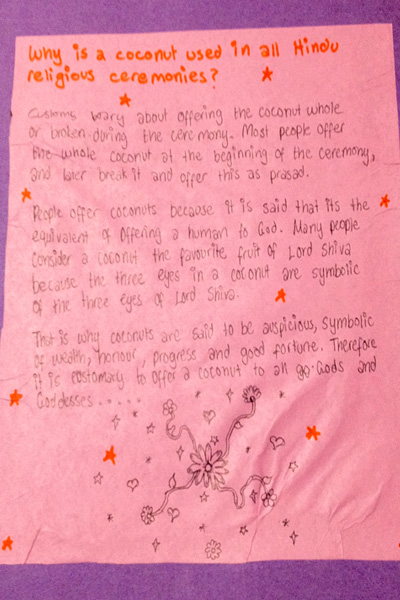 Why is a coconut used in all Hindu
religious ceremonies?
Customs vary about offering the coconut whole
or broken during the ceremony. Most people offer
the whole coconut at the beginning of the ceremony,
and later break it and offer this as prasad.
People offer coconuts because it is said that its the
equivalent of offering a human to God. Many people
consider a coconut the favourite fruit of Lord Shiva
because the three eyes in a coconut are symbolic
of the three eyes of Lord Shiva.
That is why coconuts are said to be auspicious, symbolic
of wealth, honour, progress and good fortune. Therefore
it is customary to offer a coconut to all go-Gods and
Goddesses.....